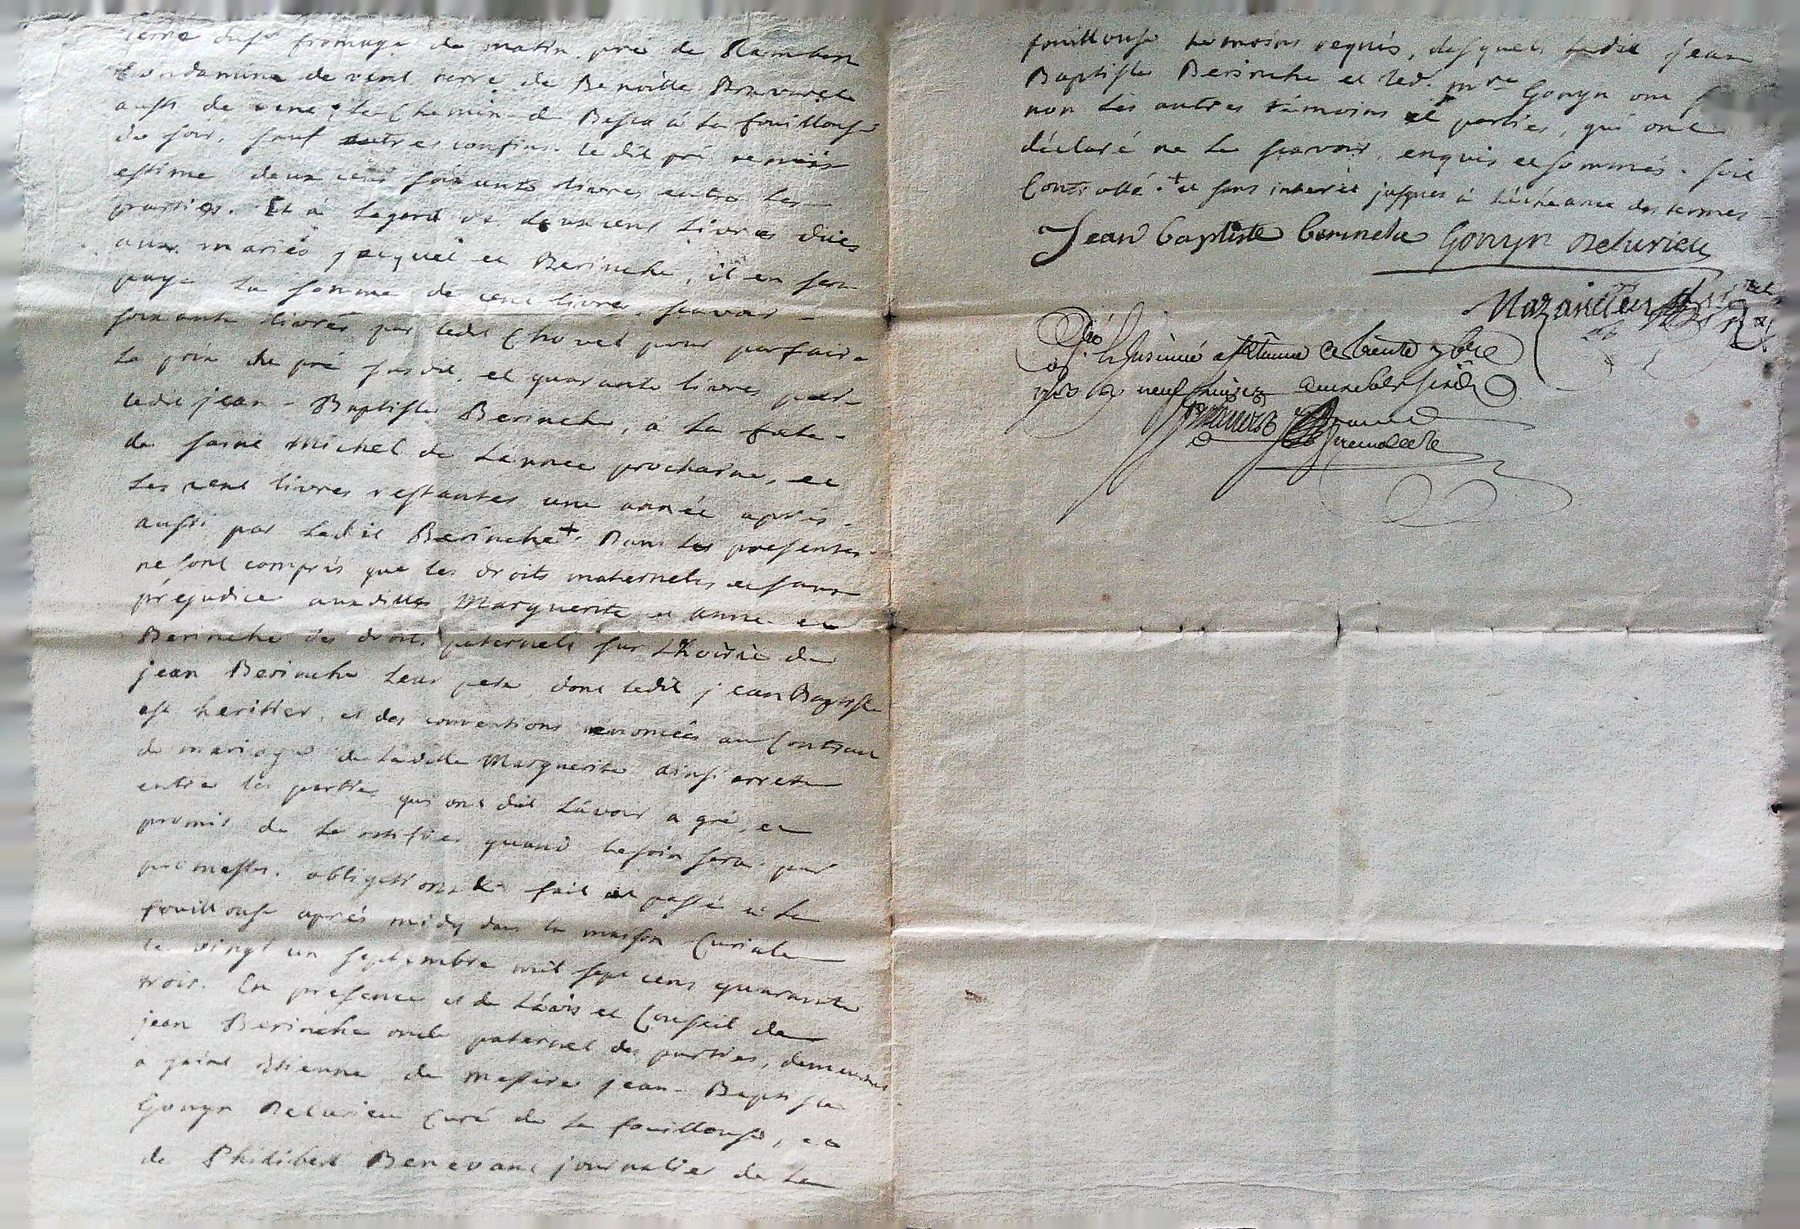 terre dud.t fromage de matin, pré de
Condamine de vent, terre de Benoitte
aussi de vent, le Chemin de à la fouillouse
de soir, sauf autres confins. ledit pré
estimé deux cens soixante livres entre les
parties. Et à légard des deux cens livres dües
aux mariés jacquet et Berinche, il en sera
payé la somme de cent livres scavoir
soixante livres par ledit Chovet pour parfaire
le prix du pré susdit, et quarante livres par
ledit jean-Baptiste Berinche, à la fete
de saint Michel de Lannée prochaine, et
Les cent livres restantes une année aprés
aussi par Ledit Berinche +. Dans les presentes
ne sont compris que les droits maternels, et sans
préjudice auxdittes Marguerite et anne
Berinche des droits paternels sur Lhoirie de
jean Berinche Leur pere, dont ledit jean Baptiste
est heritier, et des conventions enoncées au Contract
de mariage de Laditte Marguerite. ainsi arreté
entre les parties qui ont dit Lavoir a gré, et
promis de Le ratiffier quand besoin sera. par
promesses, obligations &c. fait et passé à la
fouillouse aprés midy dans la maison Curiale
le vingt un septembre mil sept cens quarante
trois. En presence et de Lavis et Conseil de
jean Berinche oncle paternel des parties, demeurant
à saint Etienne, de messire jean-Baptiste
Gonyn Delurieu Curé de La fouillouse, et
de Philibert Benevant journalier de La
fouillouse temoins requis, desquels ledit jean
Baptiste Berinche et led. m.re Gonyn ont
non Les autres témoins et parties, qui ont
déclaré ne Le scavoir, enquis et sommés. soit
Controllé. + et sans interêt jusques à Lécheance des termes
Jean baptiste berinche Gonyn Delurieu
Mazancieu